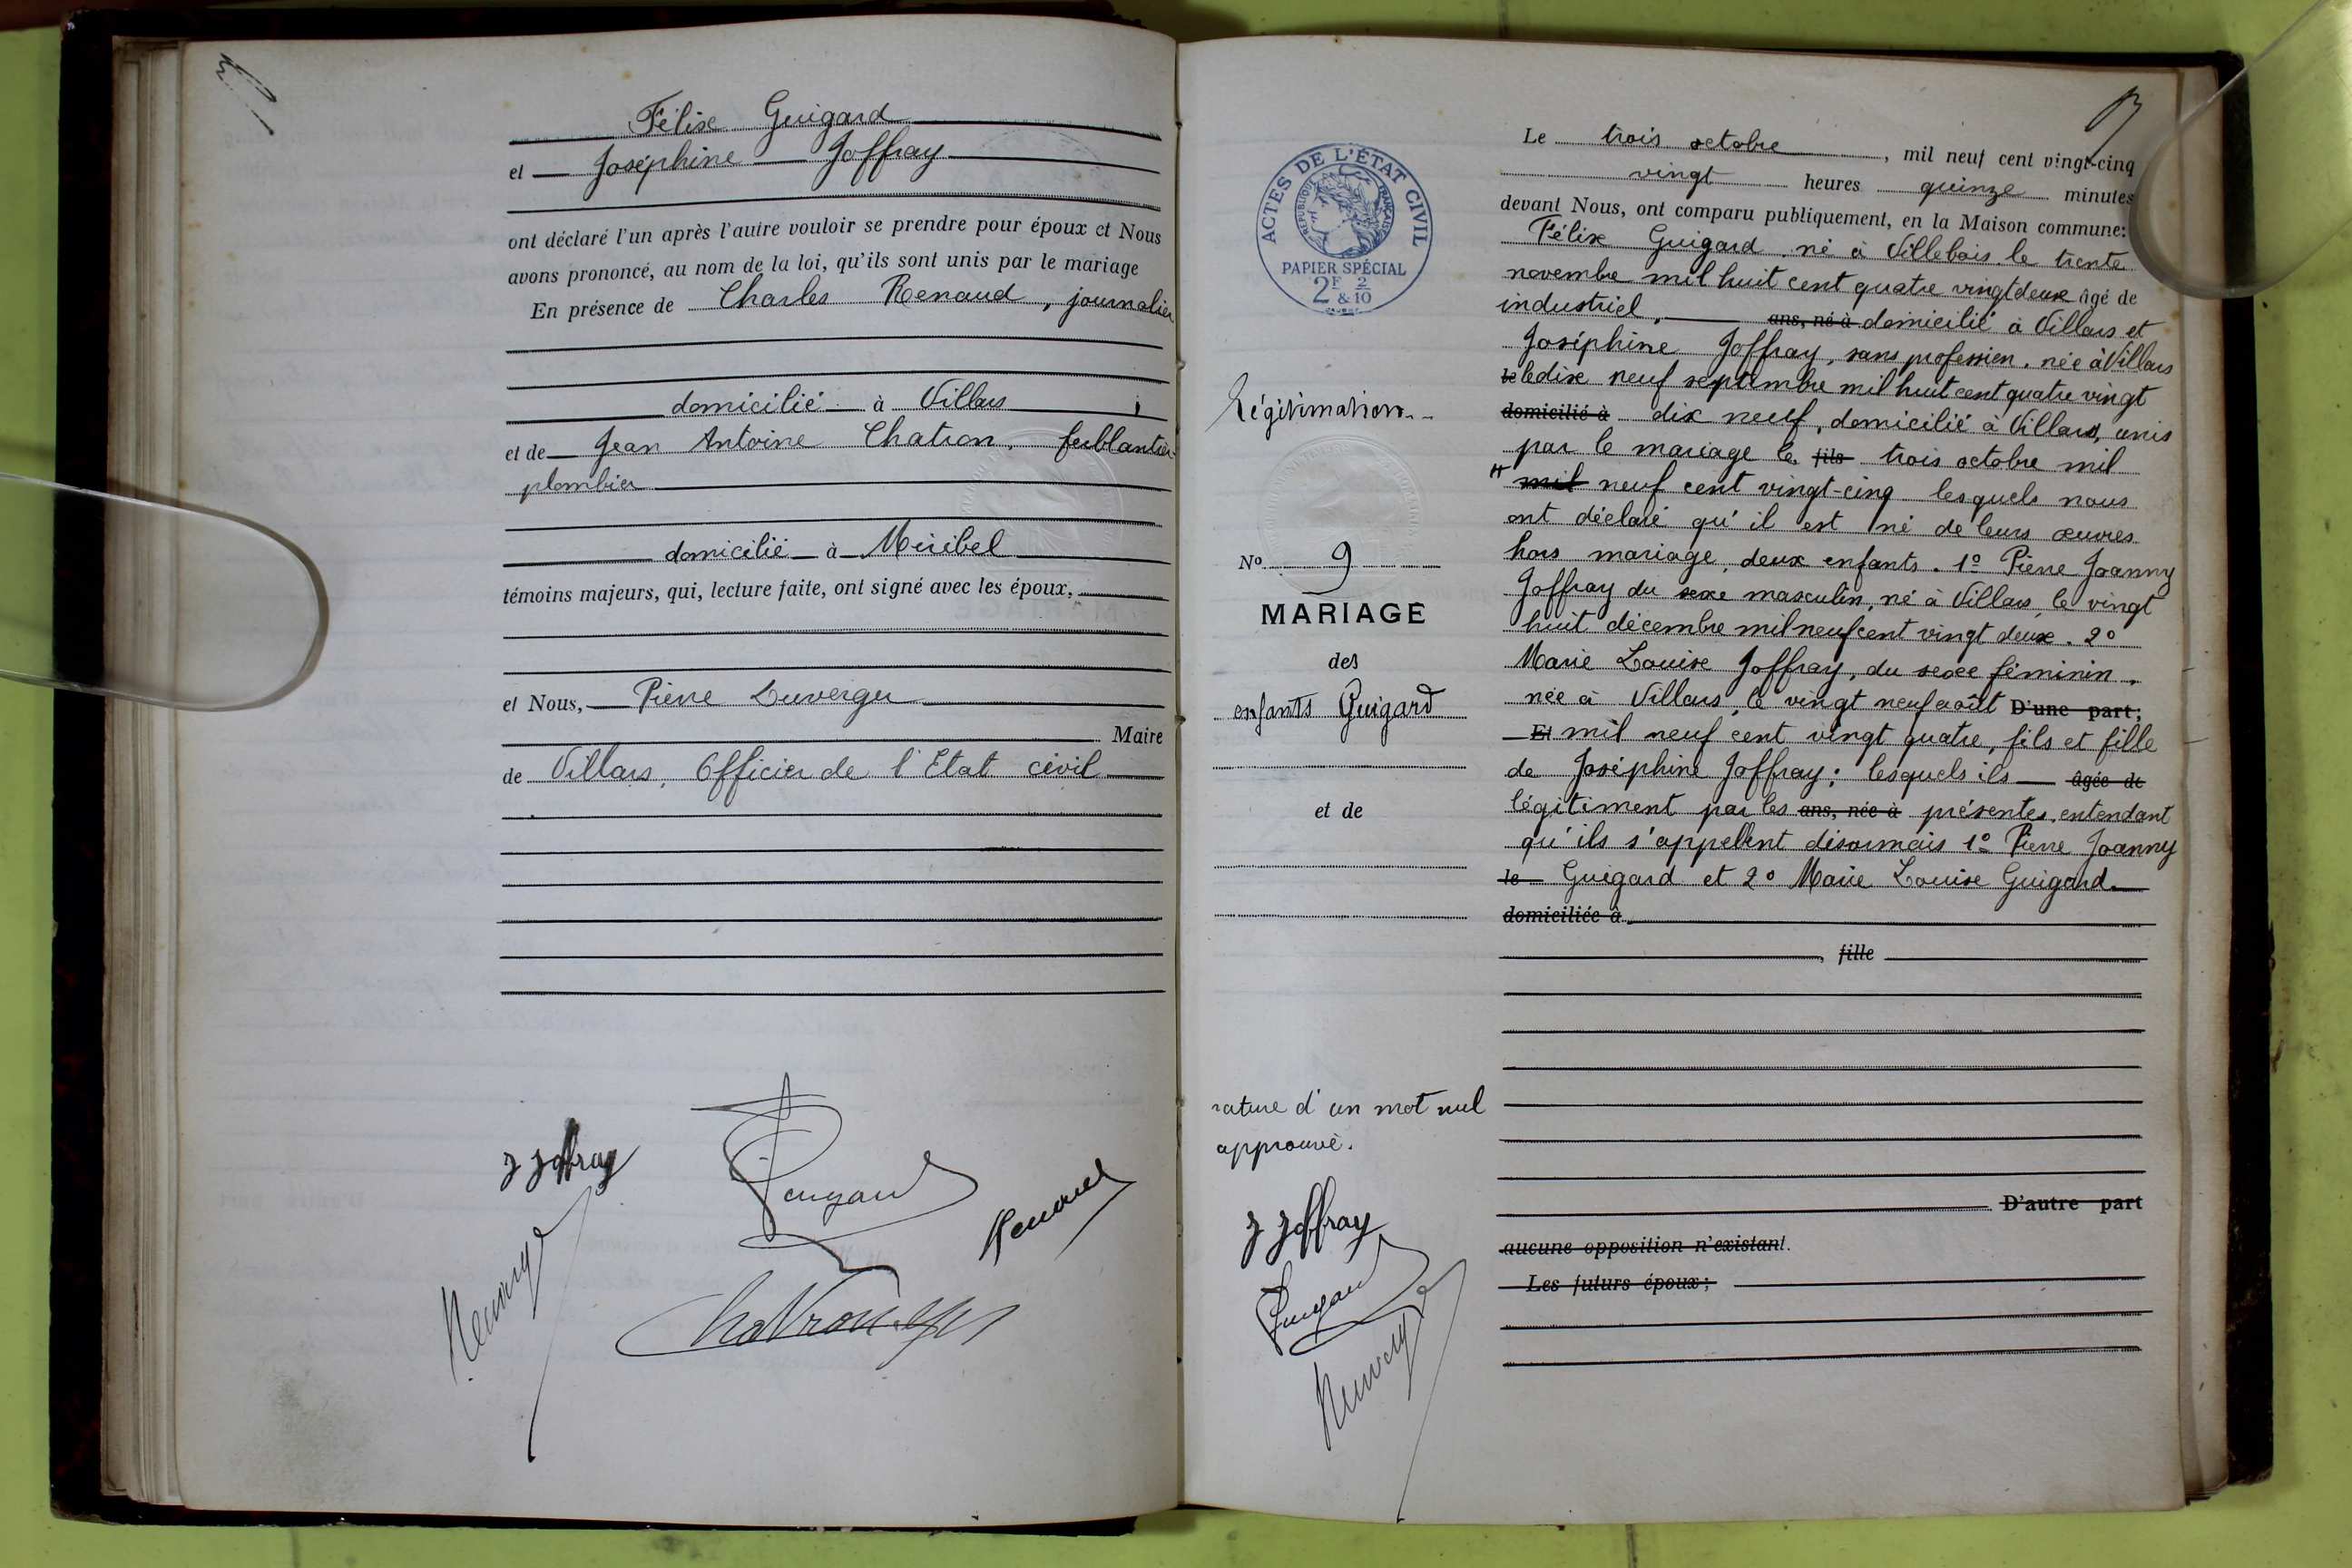 Félix Guigard
et Joséphine Joffray
ont déclaré l'un après l'autre vouloir se prendre pour époux et Nous
avons prononcé, au nom de la loi, qu'ils sont unis par le mariage
En présence de Charles Renaud, journalier
domicilié à Villars
et de Jean Antoine Chatron, ferblantier
plombier
domicilié à Miribel
témoins majeurs, qui, lecture faite, ont signé avec les époux,
et Nous, Pierre Duverger
Maire
de Villars, Officier de l'Etat civil
J Joffray
Guigard
Renaud
Chatron
ACTES DE L'ÉTAT CIVIL
RÉPUBLIQUE FRANÇAISE
PAPIER SPÉCIAL
2F & 2/10
Légitimation
No 9
MARIAGE
des
enfants Guigard
et de
rature d'un mot nul
approuvé.
J Joffray
Guigard
Le trois octobre, mil neuf cent vingt-cinq
vingt heures quinze minutes
devant Nous, ont comparu publiquement, en la Maison commune:
Félix Guigard, né à Villebois, le trente
novembre mil huit cent quatre vingt deux âgé de
industriel, ans, né à domicilié à Villars et
Joséphine Joffray, sans profession, née à Villars
le le dix neuf septembre mil huit cent quatre vingt
domicilié à dix neuf, domicilié à Villars, unis
par le mariage le fils trois octobre mil
mil neuf cent vingt-cinq lesquels nous
ont déclaré qu'il est né de leurs œuvres
hors mariage, deux enfants. 1º Pierre Joanny
Joffray du sexe masculin, né à Villars, le vingt
huit décembre mil neuf cent vingt deux. 2º
Marie Louise Joffray, du sexe féminin,
née à Villars, le vingt neuf août D'une part;
Et mil neuf cent vingt quatre, fils et fille
de Joséphine Joffray; lesquels ils âgée de
légitiment par les ans, née à présentes, entendant
qu'ils s'appellent désormais 1º Pierre Joanny
le Guigard et 2º Marie Louise Guigard
domiciliée à
, fille
D'autre part
aucune opposition n'existant.
Les futurs époux;